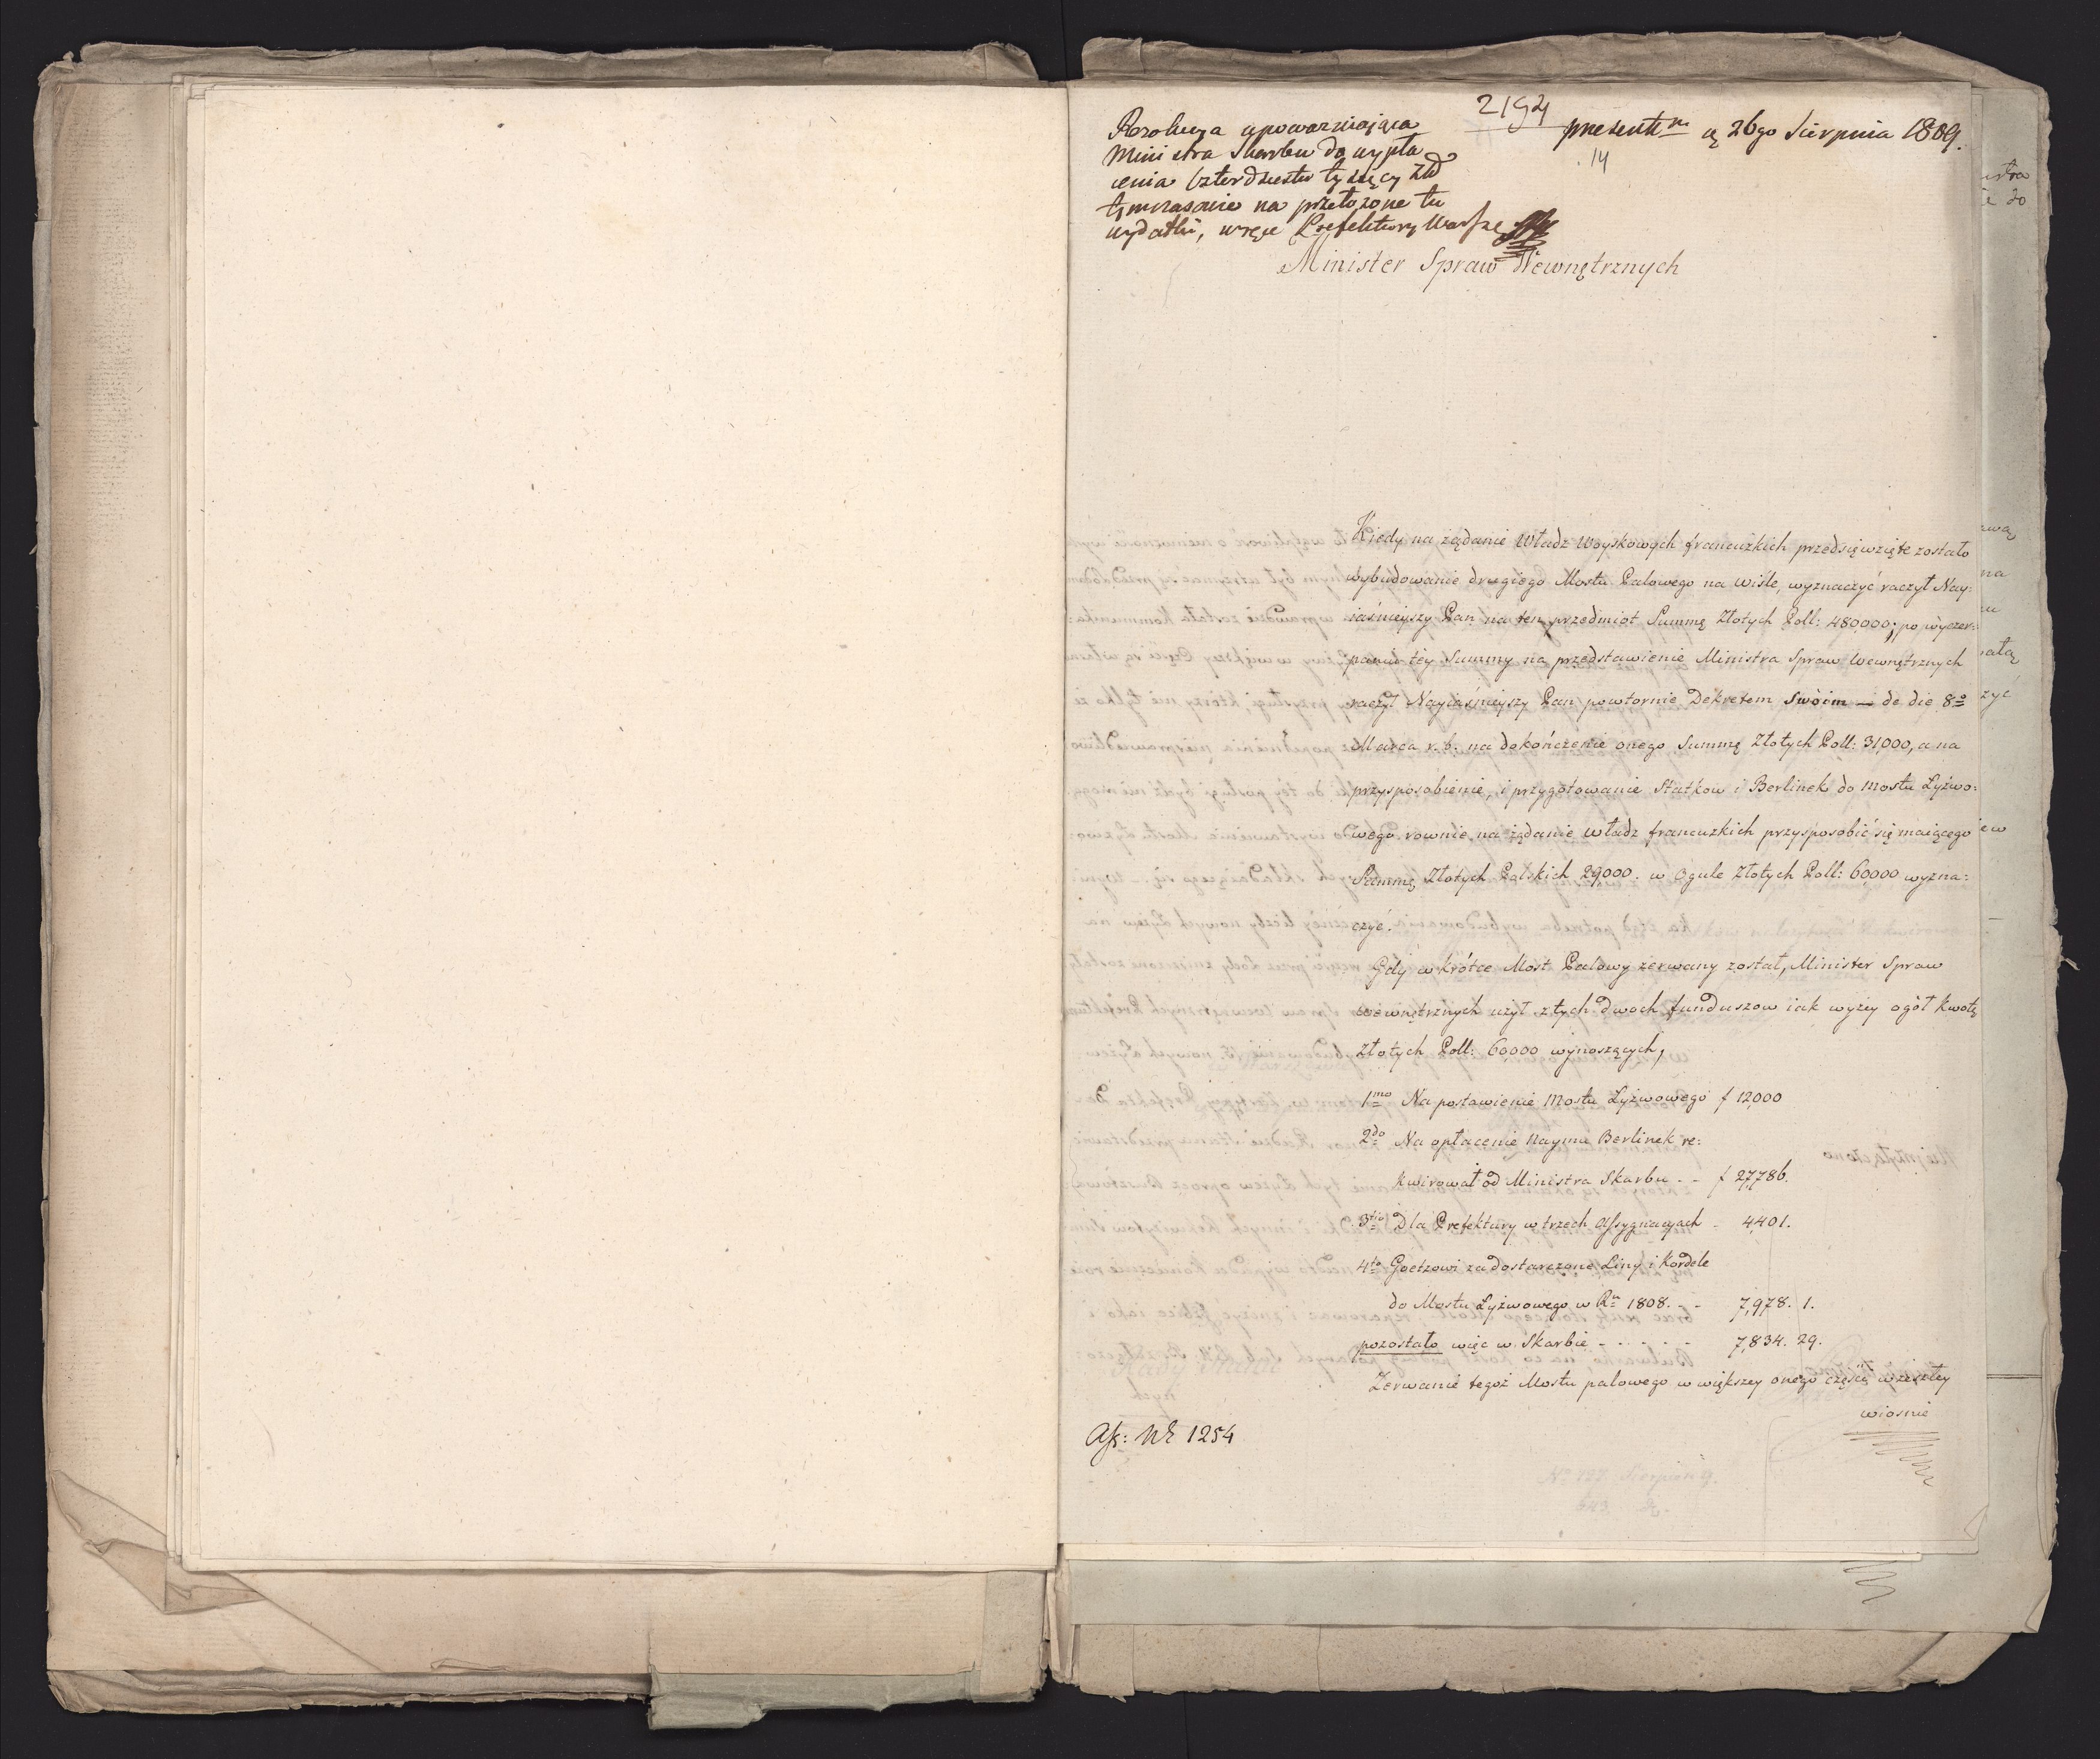 2192
presentm ą 26go Sierpnia 1809.
14
Rezolucya upowazniaiąca
Ministra Skarbu do wypła
cenia czterdziestu tysięcy Złł
tymczasowie na przełozone tu
wydatki, w ręce Prefektury Warsz
Minister Spraw Wewnętrznych
Kiedy na żądanie Władz Woyskowych francuzkich przedsięwzięte zostało
wybudowanie drugiego Mostu Palowego na Wiśle, wyznaczyć raczył Nay:
iaśnieyszy Pan na ten przedmiot Summę Złotych Poll: 480,000; po wyczer:
paniu téy Summy na przedstawienie Ministra Spraw Wewnętrznych
raczył Nayiaśnieyszy Pan powtornie Dekretem Swoim — de die 8o
Marca r. b. na dokończenie onego Summę Złotych Poll: 31,000, a na
przysposobienie, i przygotowanie Statkow i Berlinek do mostu Łyżwo:
wego rownie na żądanie władz francuzkich przysposobić się maiącego
Summę Złotych Polskich 29,000. w Ogule Złotych Poll: 60,000 wyzna:
czyć.
Gdy w krótce Most Palowy zerwany został, Minister Spraw
Wewnętrznych użył z tych dwoch funduszow iak wyżey ogół kwotę
Złotych Poll: 60,000 wynoszących,
1mo Na postawienie Mostu Łyżwowego f 12,000
2do Na opłacenie Naymu Berlinek re:
kwirował od Ministra Skarbu - - f 27,786.
3tio Dla Prefektury w trzech Assygnacyach - 4,401.
4to Goetzowi za dostarczone Liny i Kordele
do Mostu Łyżwowego w Ru 1808. - - 7,978. 1.
pozostało więc w Skarbie - - - - - 7,834. 29.
Zerwanie tegoż Mostu palowego w większey onego części w zeszłey
wiosnie
Ass: Nr 1254